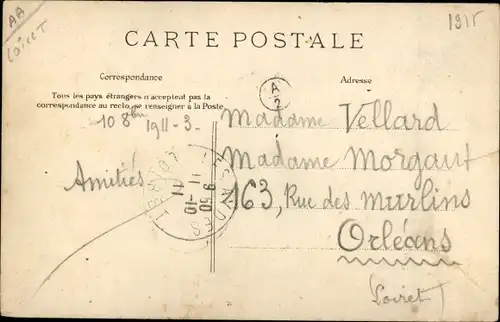 AA
Loiret
1915
CARTE POSTALE
Correspondance
Adresse
Tous les pays étrangers n'acceptent pas la
correspondance au recto, se renseigner à la Poste
A
2
10 8bre 1911-3.
Amitiés
Madame Vellard
Madame Morgaut
163, Rue des murlins
Orléans
Loiret
11
9 50
11 -10